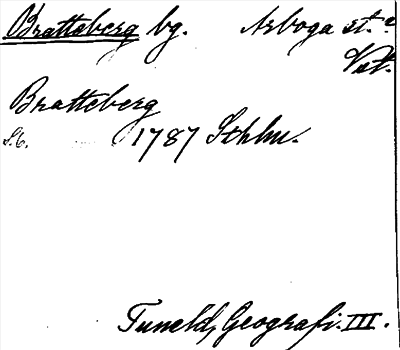 Brattaberg bg. Arboga st.
Vst.
Bratteberg
S. 6. 1787 Sthlm.
Tuneld, Geografi. III.